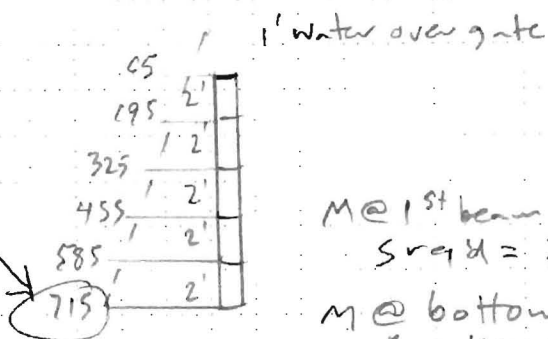 1' water over gate
65'
2'
195'
2'
325'
2'
455'
2'
585'
2'
715'
M @ 1st beam
Sreq'd =
M @ bottom